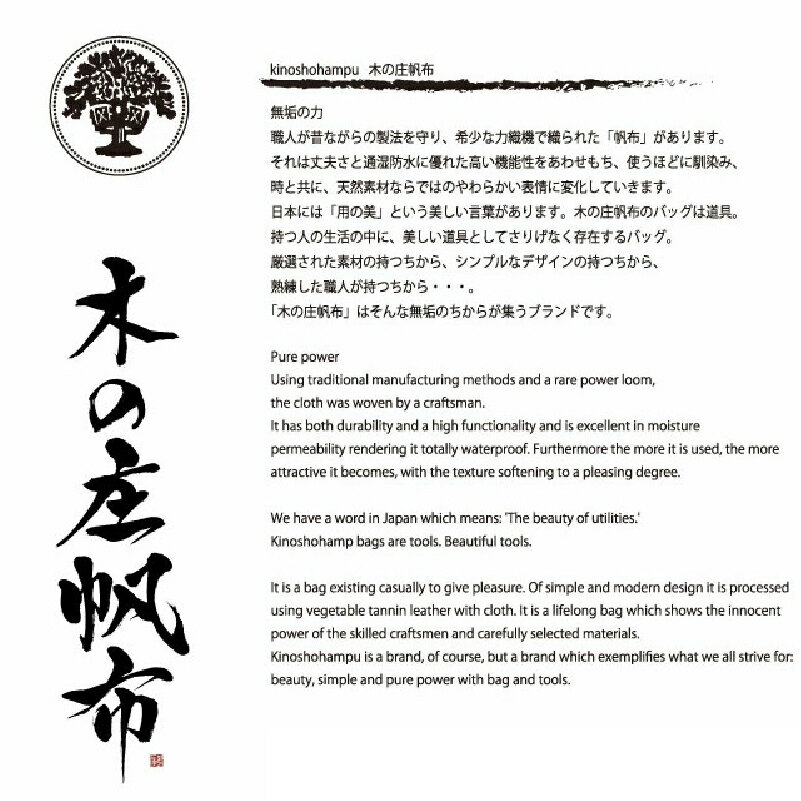 kinoshohampu 木の庄帆布
無垢の力
職人が昔ながらの製法を守り、希少な力織機で織られた「帆布」があります。
それは丈夫さと通湿防水に優れた高い機能性をあわせもち、使うほどに馴染み、
時と共に、天然素材ならではのやわらかい表情に変化していきます。
日本には「用の美」という美しい言葉があります。木の庄帆布のバッグは道具。
持つ人の生活の中に、美しい道具としてさりげなく存在するバッグ。
厳選された素材の持つちから、シンプルなデザインの持つちから、
熟練した職人が持つちから・・・。
「木の庄帆布」はそんな無垢のちからが集うブランドです。
Pure power
Using traditional manufacturing methods and a rare power loom,
the cloth was woven by a craftsman.
It has both durability and a high functionality and is excellent in moisture
permeability rendering it totally waterproof. Furthermore the more it is used, the more
attractive it becomes, with the texture softening to a pleasing degree.
We have a word in Japan which means: 'The beauty of utilities.'
Kinoshohamp bags are tools. Beautiful tools.
It is a bag existing casually to give pleasure. Of simple and modern design it is processed
using vegetable tannin leather with cloth. It is a lifelong bag which shows the innocent
power of the skilled craftsmen and carefully selected materials.
Kinoshohampu is a brand, of course, but a brand which exemplifies what we all strive for:
beauty, simple and pure power with bag and tools.
木の庄帆布